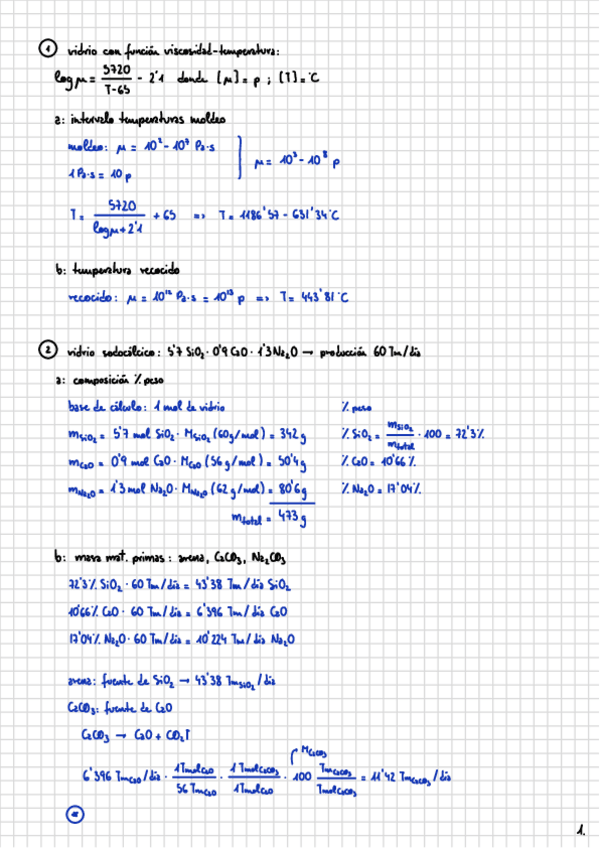 ① vidrio con función viscosidad-temperatura:
log μ = 5720 / (T-65) - 2'1 donde [μ] = p ; [T] = °C
a: intervalo temperaturas moldeo
moldeo: μ = 10² - 10⁷ Pa·s
μ = 10³ - 10⁸ p
1 Pa·s = 10 p
T = 5720 / (log μ + 2'1) + 65 => T = 1186'57 - 631'34 °C
b: temperatura recocido
recocido: μ = 10¹² Pa·s = 10¹³ p => T = 443'81 °C
② vidrio sodocálcico: 5'7 SiO₂ · 0'9 CaO · 1'3 Na₂O → producción 60 Tm/día
a: composición % peso
base de cálculo: 1 mol de vidrio % peso
m_SiO₂ = 5'7 mol SiO₂ · M_SiO₂ (60 g/mol) = 342 g % SiO₂ = m_SiO₂ / m_total · 100 = 72'3 %
m_CaO = 0'9 mol CaO · M_CaO (56 g/mol) = 50'4 g % CaO = 10'66 %
m_Na₂O = 1'3 mol Na₂O · M_Na₂O (62 g/mol) = 80'6 g % Na₂O = 17'04 %
m_total = 473 g
b: masa mat. primas: arena, CaCO₃, Na₂CO₃
72'3 % SiO₂ · 60 Tm/día = 43'38 Tm/día SiO₂
10'66 % CaO · 60 Tm/día = 6'396 Tm/día CaO
17'04 % Na₂O · 60 Tm/día = 10'224 Tm/día Na₂O
arena: fuente de SiO₂ → 43'38 Tm SiO₂ / día
CaCO₃: fuente de CaO
CaCO₃ → CaO + CO₂↑
M CaCO₃
6'396 Tm CaO / día · 1 Tmol CaO / 56 Tm CaO · 1 Tmol CaCO₃ / 1 Tmol CaO · 100 Tm CaCO₃ / Tmol CaCO₃ = 11'42 Tm CaCO₃ / día
1.